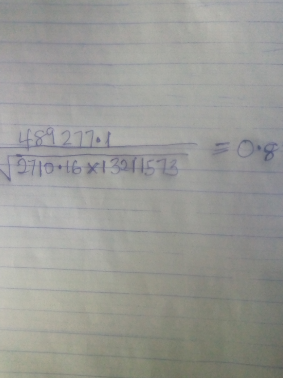 489277.1
√2710.16×13211573 = 0.8